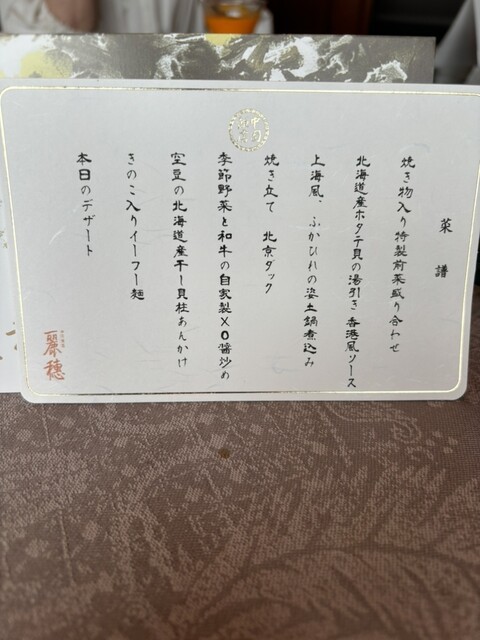 菜譜
焼き物入り特製前菜盛り合わせ
北海道産ホタテ貝の湯引き 香港風ソース
上海風、ふかひれの姿土鍋煮込み
焼き立て 北京ダック
季節野菜と和牛の自家製XO醤炒め
空豆の北海道産干し貝柱あんかけ
きのこ入りイーフー麺
本日のデザート
麗穂